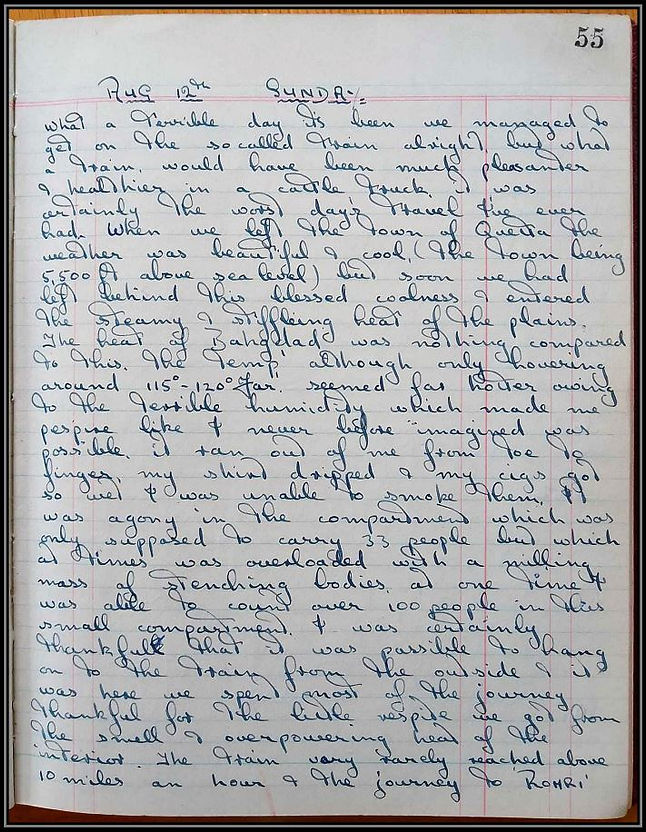 55
AUG 12th SUNDAY:-
What a terrible day its been we managed to
get on the so called train alright, but what
a train, would have been much pleasanter
& healthier in a cattle truck, it was
certainly the worst day's travel I've ever
had. When we left the town of Quetta the
weather was beautiful & cool, (the town being
5,500 ft above sea level) but soon we had
left behind this blessed coolness & entered
the steamy & stiffleing heat of the plains.
The heat of Bahgdad was nothing compared
to this. The Temp' although only hovering
around 115°-120° Far. seemed far hotter owing
to the terrible humidity which made me
pespire like I never before imagined was
possible. it ran out of me from toe to
finger, my shirt dripped & my cigs got
so wet I was unable to smoke them, It
was agony in the compartment which was
only supposed to carry 33 people but which
at times was overloaded with a milling
mass of stenching bodies, at one time I
was able to count over 100 people in this
small compartment. I was certainly
thankful that it was possible to hang
on to the train from the outside & it
was here we spent most of the journey
thankful for the little respite we got from
the smell & overpowering heat of the
interior. The train very rarely reached above
10 miles an hour & the journey to 'ROHRI'